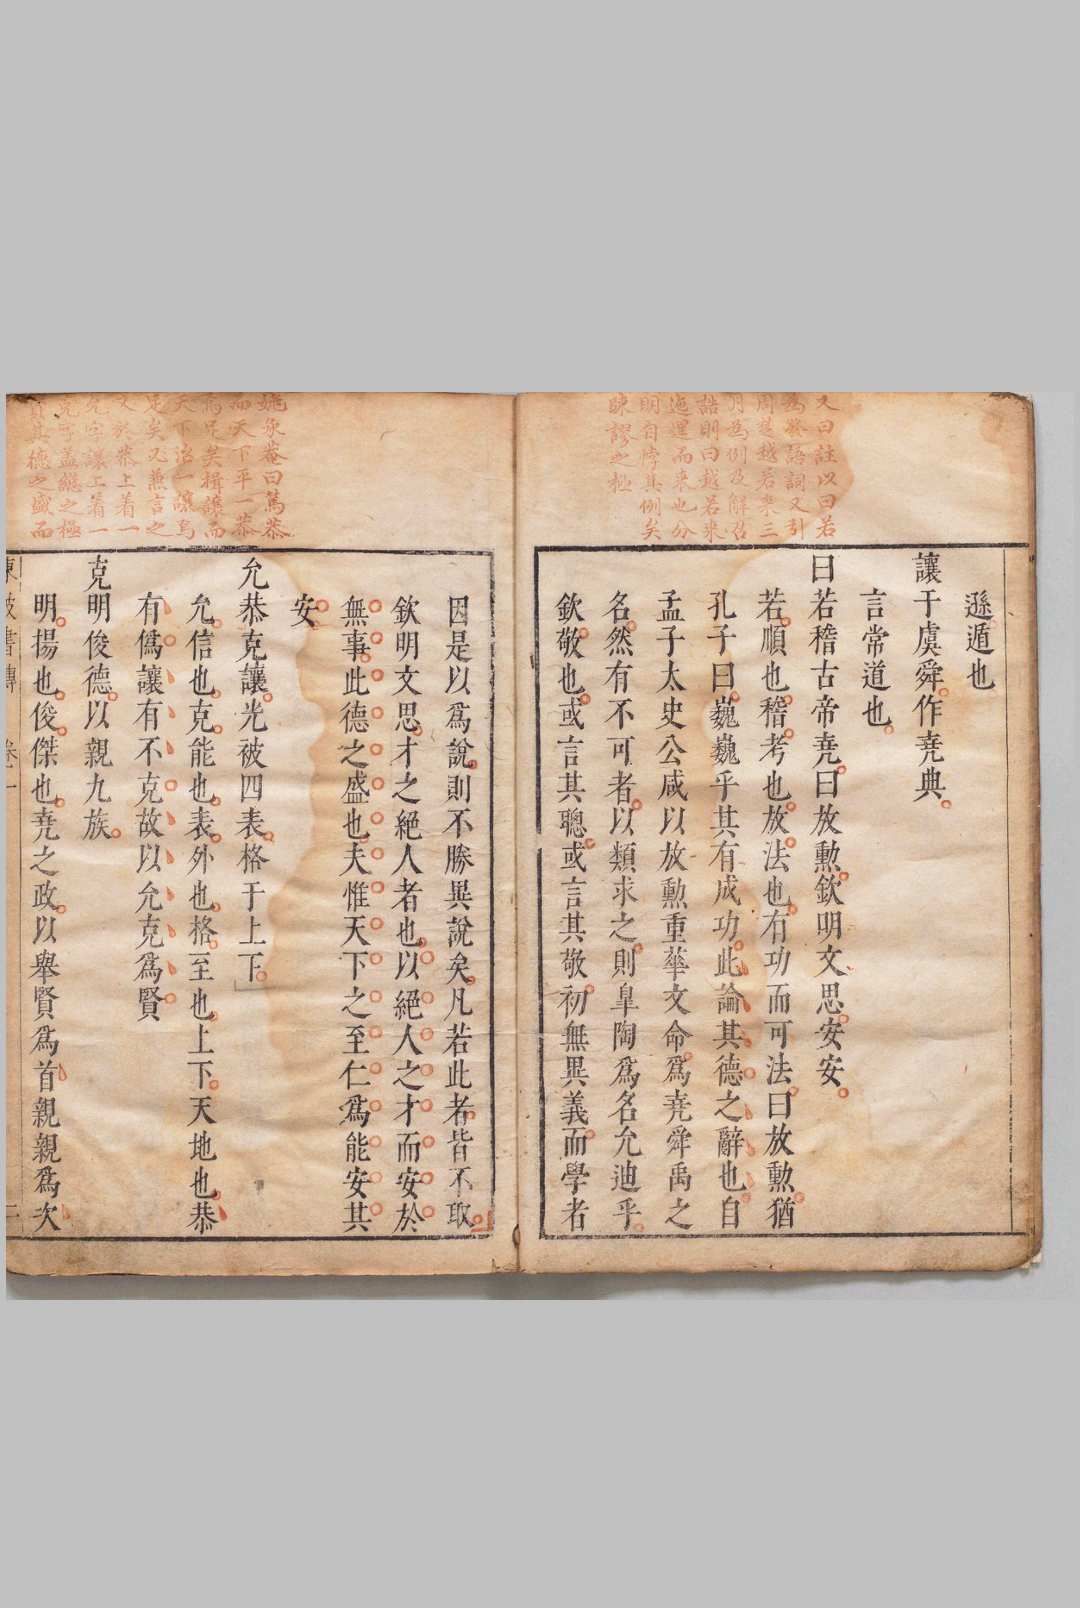 又曰註以曰若
為發語詞又引
周書越若來三
月為例及解召
誥則曰越若來
迤邐而來也分
明自悖其例矣
踈謬之極
遜遁也
讓于虞舜作堯典
言常道也
曰若稽古帝堯曰放勳欽明文思安安
若順也稽考也放法也有功而可法曰放勳猶
孔子曰巍巍乎其有成功此論其德之辭也自
孟子太史公咸以放勳重華文命爲堯舜禹之
名然有不可者以類求之則臯陶爲名允迪乎
欽敬也或言其聰或言其敬初無異義而學者
姚承菴曰篤恭
而天下平一恭
為足矣揖讓而
天下治一讓焉
足矣又兼言之
又於恭上着一
允字讓上着一
克字蓋總之極
其德之盛而
因是以爲說則不勝異說矣凡若此者皆不取
欽明文思才之絕人者也以絕人之才而安於
無事此德之盛也夫惟天下之至仁爲能安其
安
允恭克讓光被四表格于上下
允信也克能也表外也格至也上下天地也恭
有僞讓有不克故以允克爲賢
克明俊德以親九族
明揚也俊傑也堯之政以舉賢爲首親親爲次
東坡書傳 卷一 二